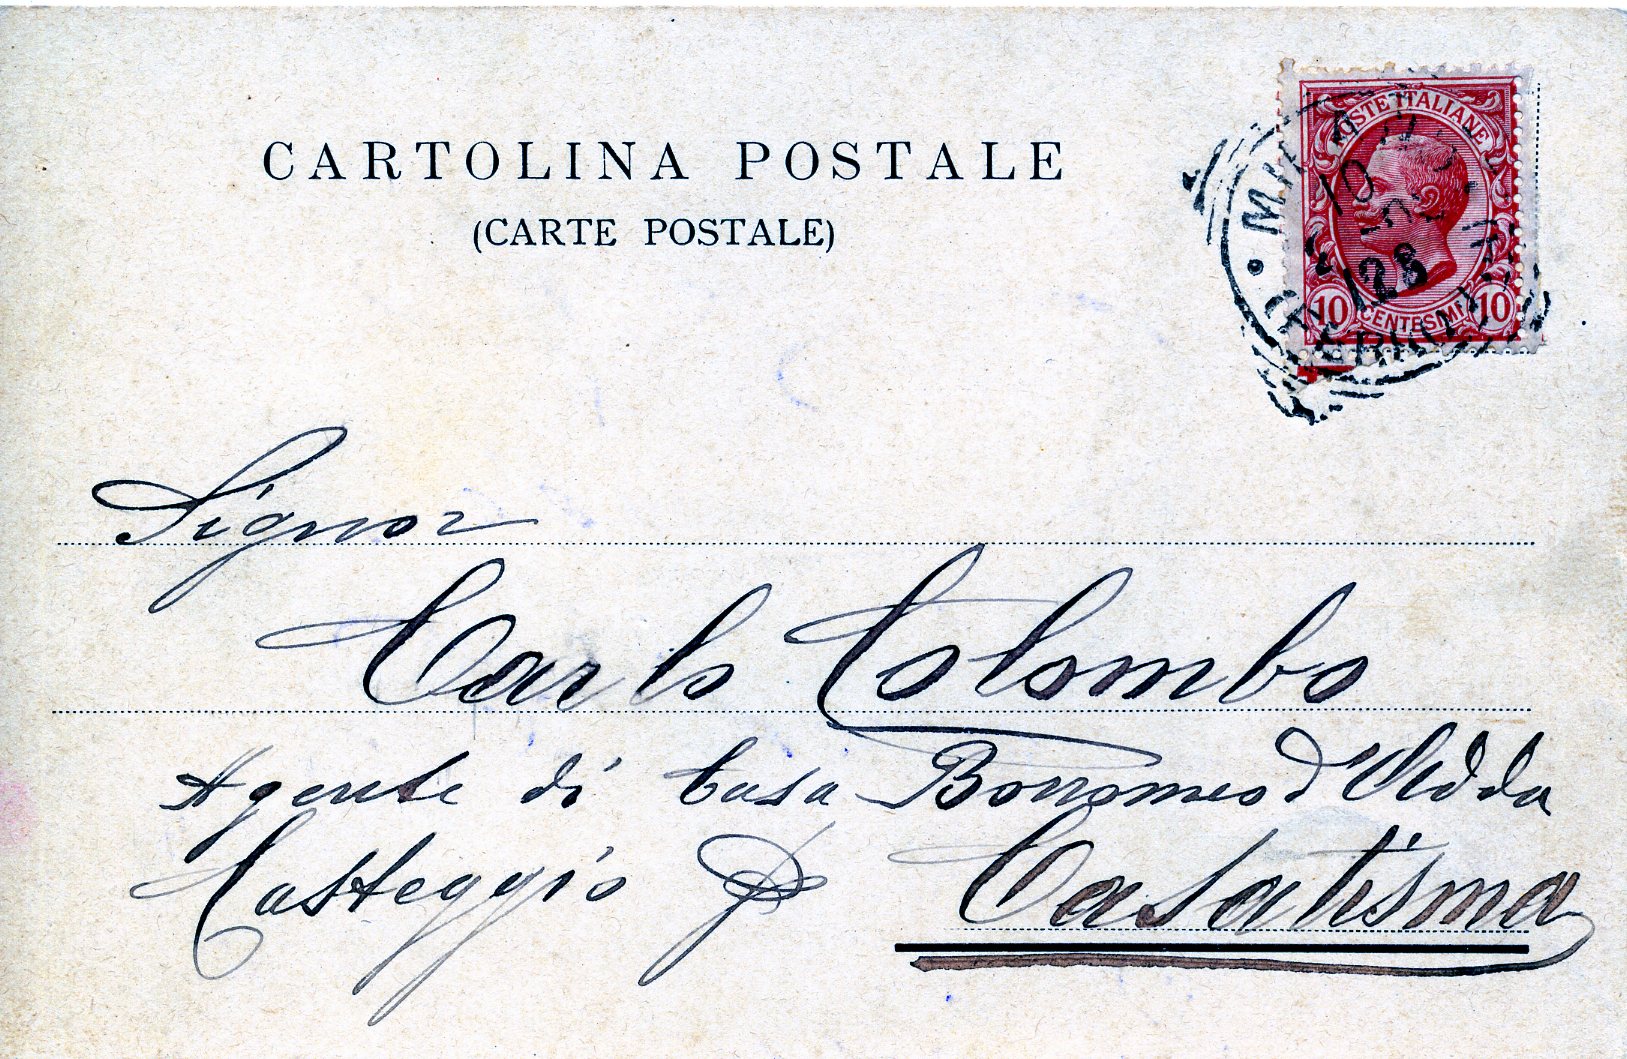 CARTOLINA POSTALE
(CARTE POSTALE)
POSTE ITALIANE
10 CENTESIMI 10
Signor
Carlo Colombo
Agente di Casa Borromeo d'Adda
Casteggio p Casatisma